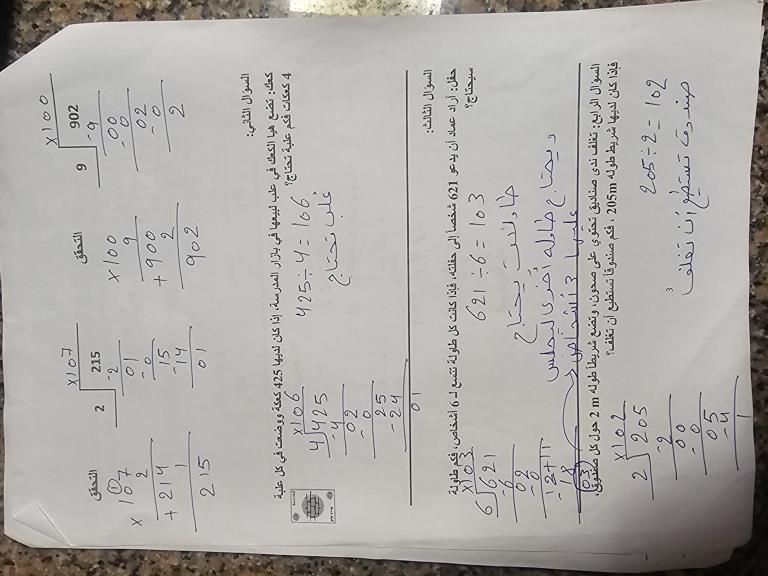 ×107
2 215
-2
01
-0
15
-14
01
التحقق
107
× 2
214
+ 1
215
×100
9 902
-9
00
-0
02
-0
2
التحقق
×100
9
900
+ 2
902
السؤال الثاني:
كعك: تضع هيا الكعك في علب لبيعها في بازار المدرسة، إذا كان لديها 425 كعكة ووضعت في كل علبة
4 كعكات فكم علبة تحتاج؟
425÷4=106
علب تحتاج
×106
4 425
-4
02
-0
25
-24
01
السؤال الثالث:
حفل: أراد عماد أن يدعو 621 شخصاً إلى حفلته، فإذا كانت كل طاولة تتسع لـ 6 أشخاص، فكم طاولة
سيحتاج؟
621÷6=103
طاولات يحتاج
ويحتاج طاوله أخرى ليجلس
عليها 3 أشخاص
×103
6 621
-6
02
-0
-18
03
السؤال الرابع: تغلف ندى صناديق تحتوي على صحون، وتضع شريطاً طوله 2 m حول كل صندوق،
فإذا كان لديها شريط طوله 205m ، فكم صندوقاً تستطيع أن تغلف؟
205÷2=102
صندوق تستطيع أن تغلف
×102
2 205
-2
00
-0
05
-4
1